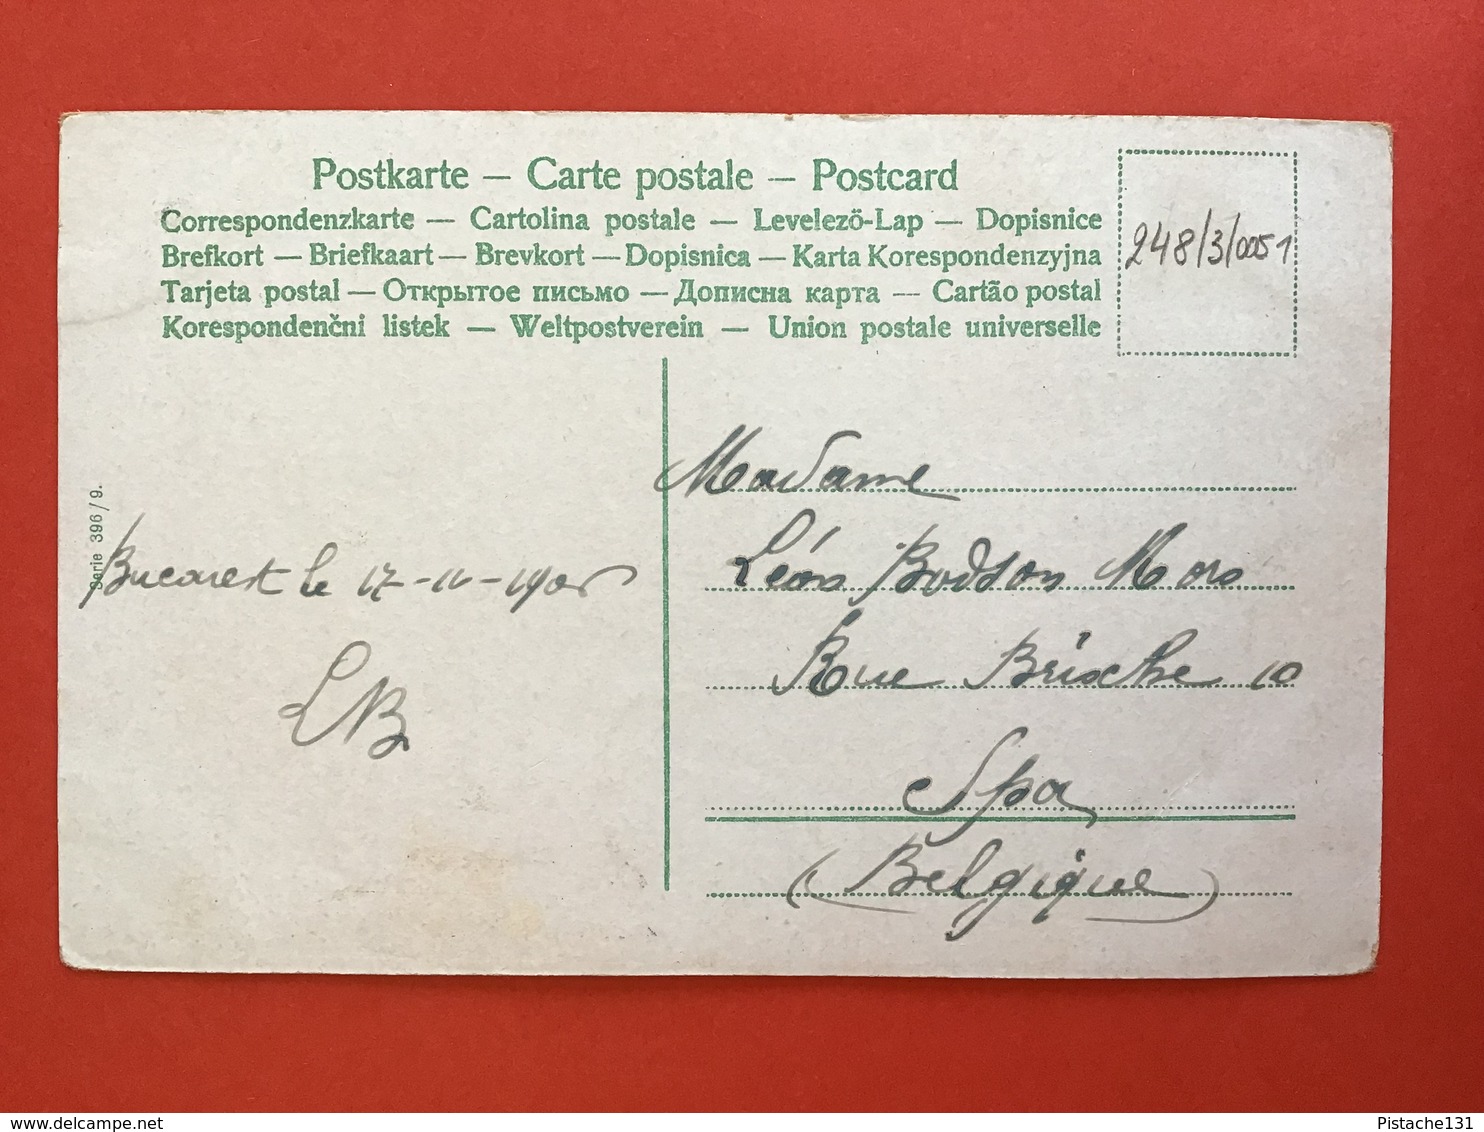 Postkarte — Carte postale — Postcard
Correspondenzkarte — Cartolina postale — Levelező-Lap — Dopisnice
Brefkort — Briefkaart — Brevkort — Dopisnica — Karta Korespondenzyjna
Tarjeta postal — Открытое письмо — Дописна карта — Cartão postal
Korespondenčni listek — Weltpostverein — Union postale universelle
248/3/0051
Serie 396/9.
Bucarest le 17-11-190
LB
Madame
Léon Bodson Mars
Rue Brixhe 10
Spa
(Belgique)
delcampe.net
Pistache131